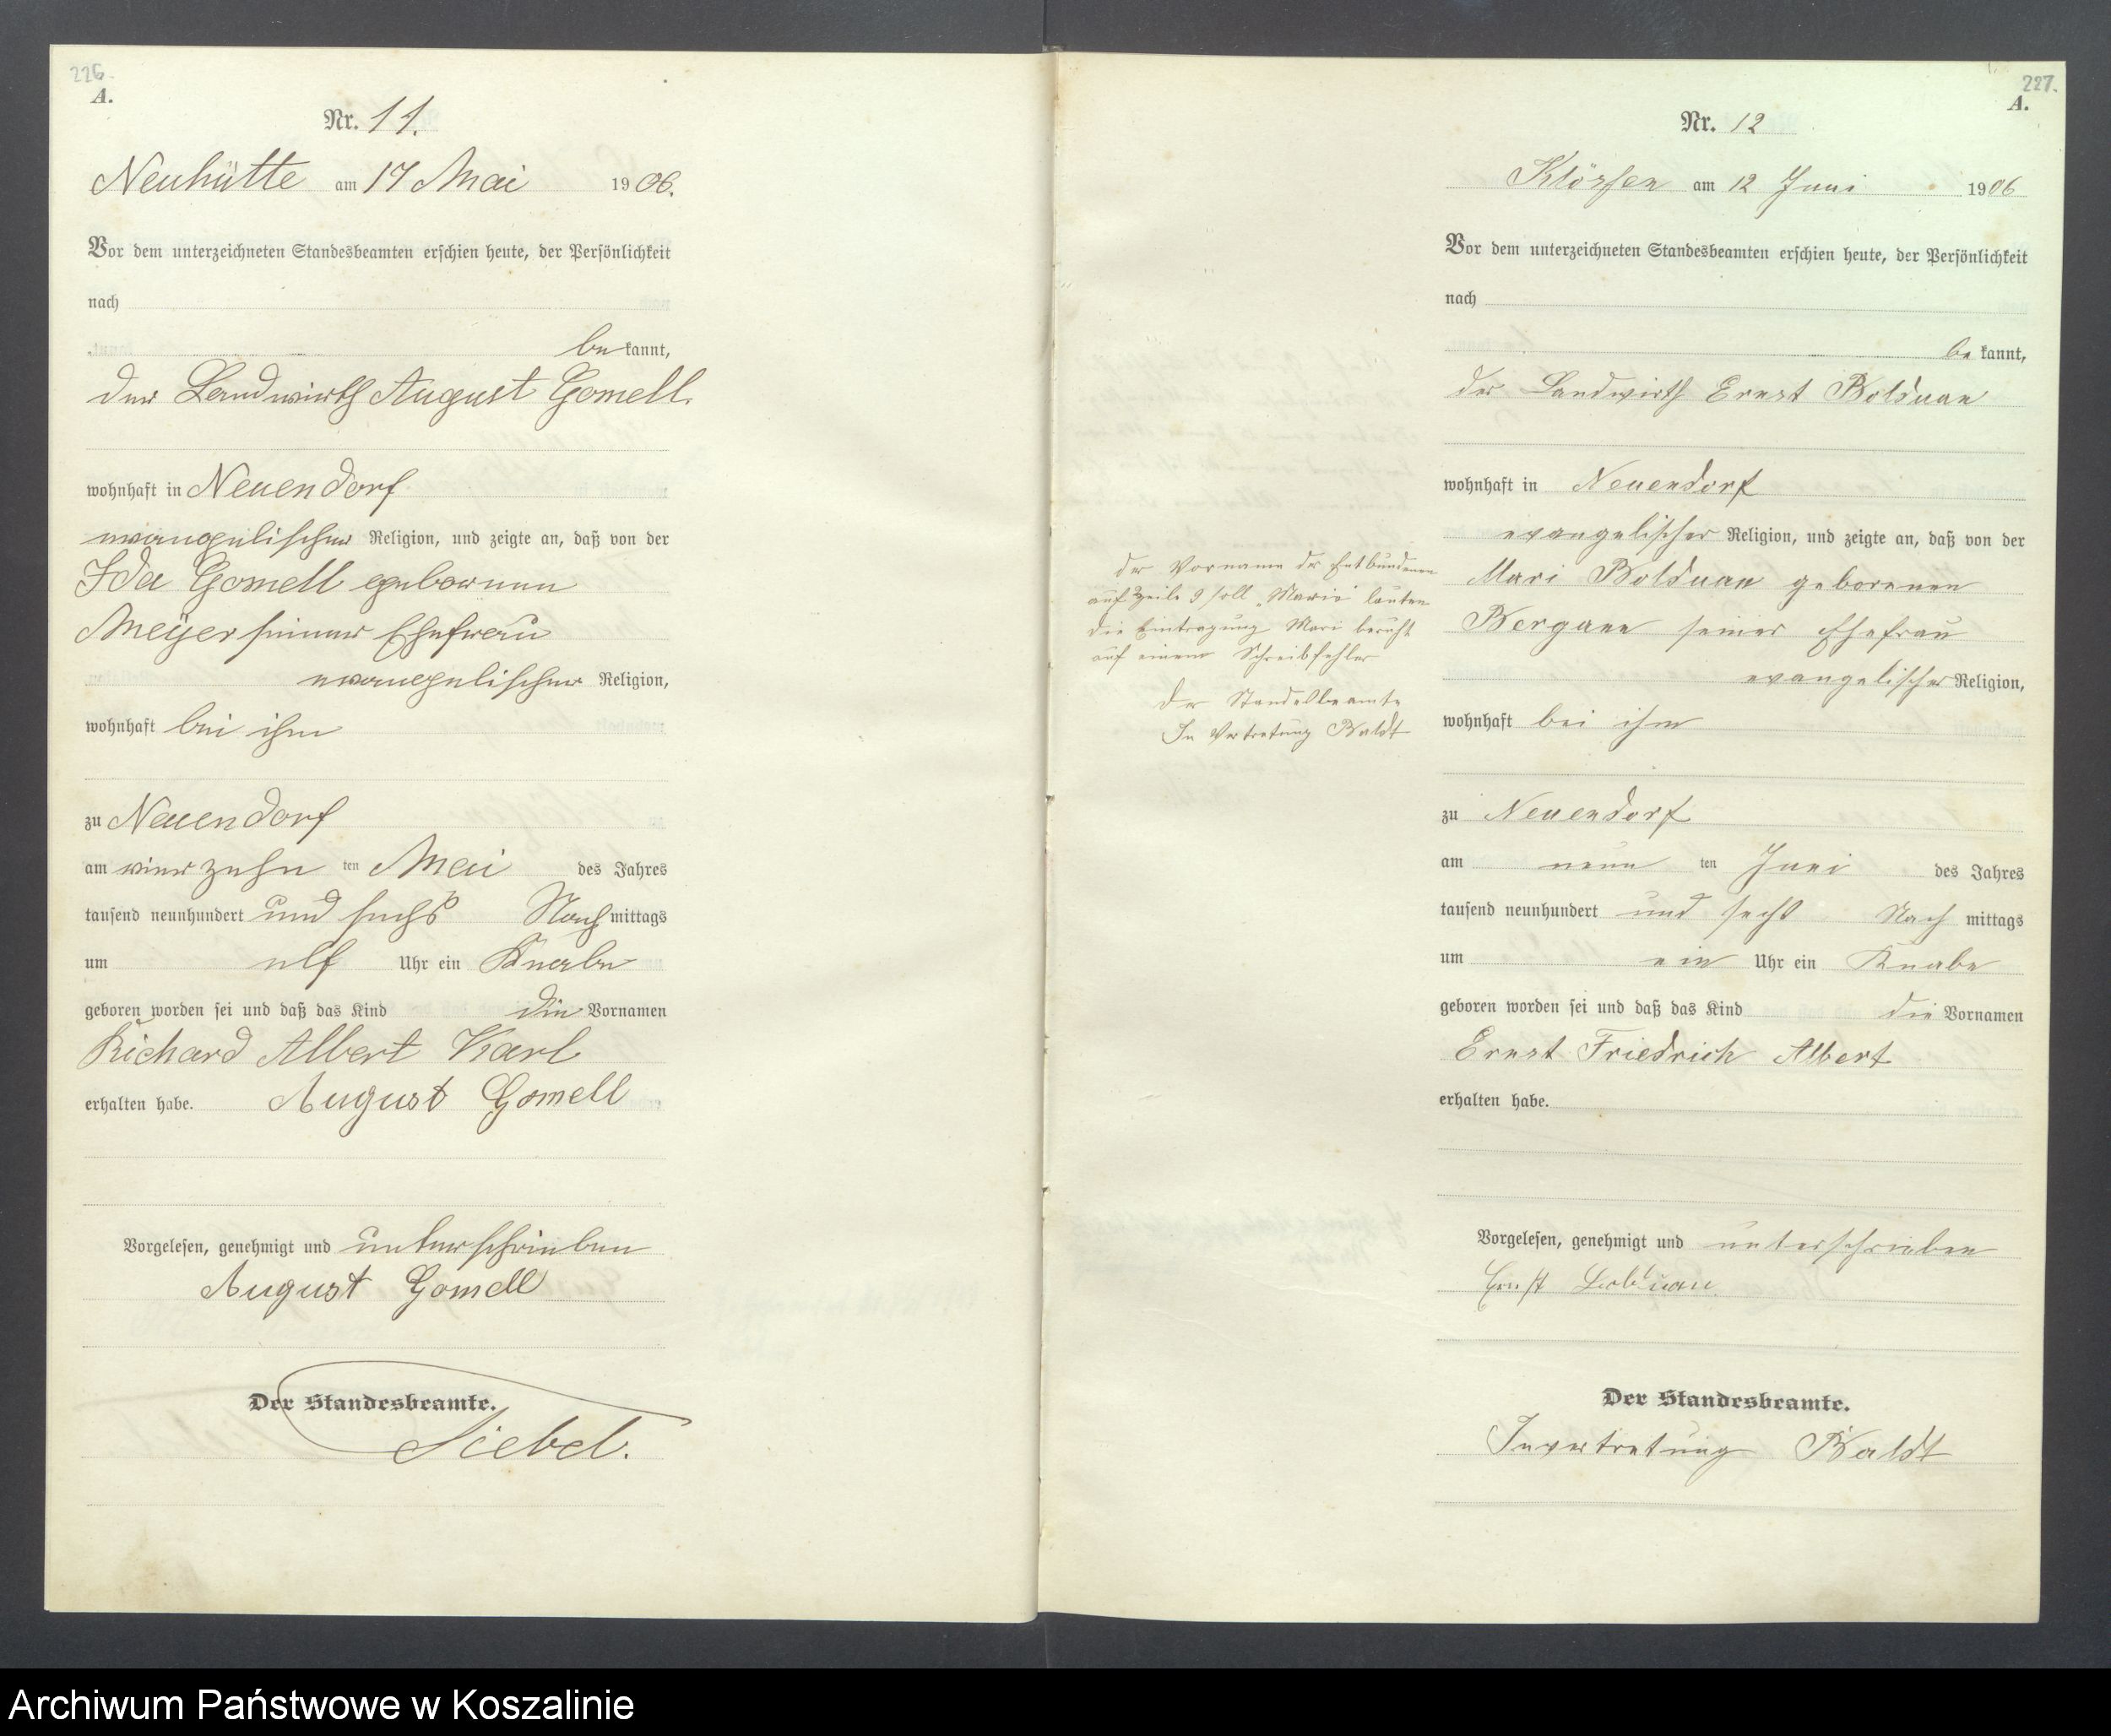 226.
A.
Nr. 11.
Neuhütte am 17 Mai 1906.
Vor dem unterzeichneten Standesbeamten erschien heute, der Persönlichkeit
nach
bekannt,
der Landwirth August Gomell.
wohnhaft in Neuendorf
evangelischer Religion, und zeigte an, daß von der
Ida Gomell geborenen
Meÿer seiner Ehefrau
evangelischer Religion,
wohnhaft bei ihm
zu Neuendorf
am vierzehn ten Mai des Jahres
tausend neunhundert und sechs Nachmittags
um elf Uhr ein Knabe
geboren worden sei und daß das Kind die Vornamen
Richard Albert Karl
erhalten habe. August Gomell
Vorgelesen, genehmigt und unterschrieben
August Gomell
Der Standesbeamte.
Siebel.
227.
A.
Nr. 12
Klörfen am 12 Juni 1906
Vor dem unterzeichneten Standesbeamten erschien heute, der Persönlichkeit
nach
bekannt,
der Landwirth Ernst Bolduan
wohnhaft in Neuendorf
evangelischer Religion, und zeigte an, daß von der
Mari Bolduan geborenen
Bergann seiner Ehefrau
evangelischer Religion,
wohnhaft bei ihm
zu Neuendorf
am neun ten Juni des Jahres
tausend neunhundert und sechs Nachmittags
um ein Uhr ein Knabe
geboren worden sei und daß das Kind die Vornamen
Ernst Friedrich Albert
erhalten habe.
Vorgelesen, genehmigt und unterschrieben
Ernst Bolduan
Der Standesbeamte.
In vertretung Baldt
der Vorname der Entbundenen
auf Zeile 9 soll „Marie" lauten
die Eintragung Mari beruht
auf einem Schreibfehler
Der Standesbeamte
In Vertretung Baldt
Archiwum Państwowe w Koszalinie